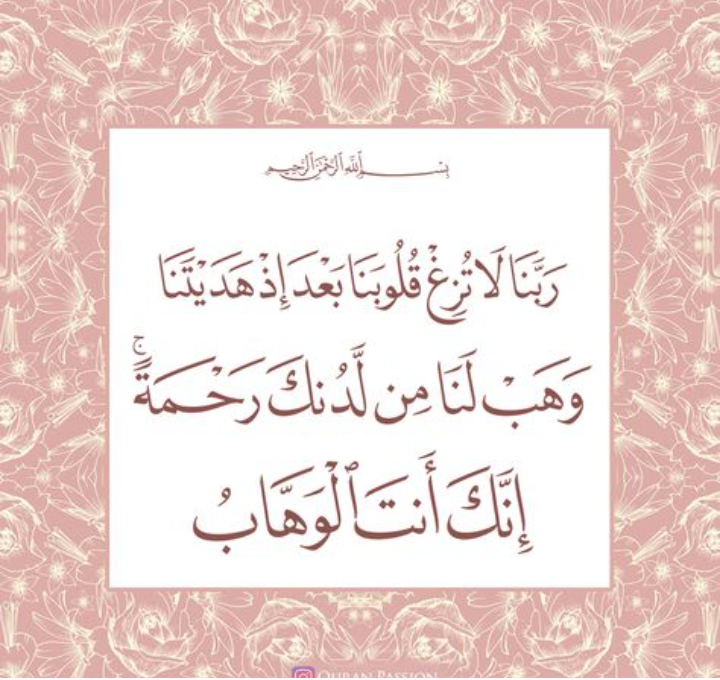 بِسْمِ ٱللَّهِ ٱلرَّحْمَٰنِ ٱلرَّحِيمِ
رَبَّنَا لَا تُزِغْ قُلُوبَنَا بَعْدَ إِذْ هَدَيْتَنَا
وَهَبْ لَنَا مِن لَّدُنكَ رَحْمَةً ۚ
إِنَّكَ أَنتَ ٱلْوَهَّابُ
QURAN PASSION